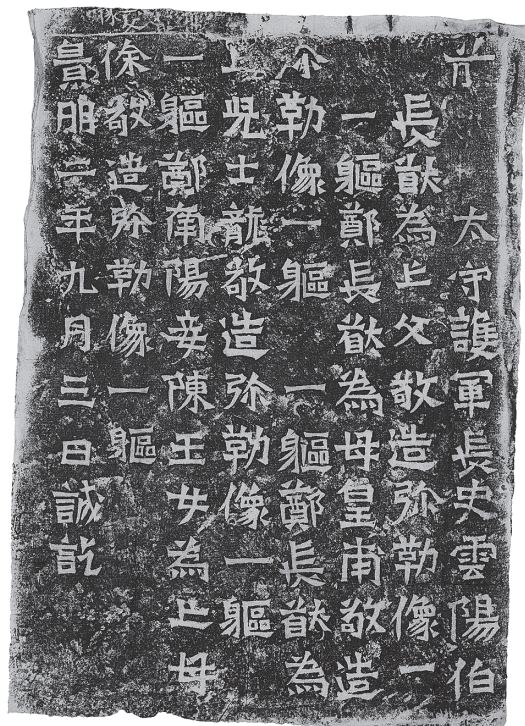 前太守護軍長史雲陽伯
長猷為亡父敬造弥勒像一
一軀鄭長猷為母皇甫敬造
弥勒像一軀一軀鄭長猷為
亡児士龍敬造弥勒像一軀
一軀鄭南陽妾陳玉女為亡母
徐敬造弥勒像一軀
景明二年九月三日誡訖